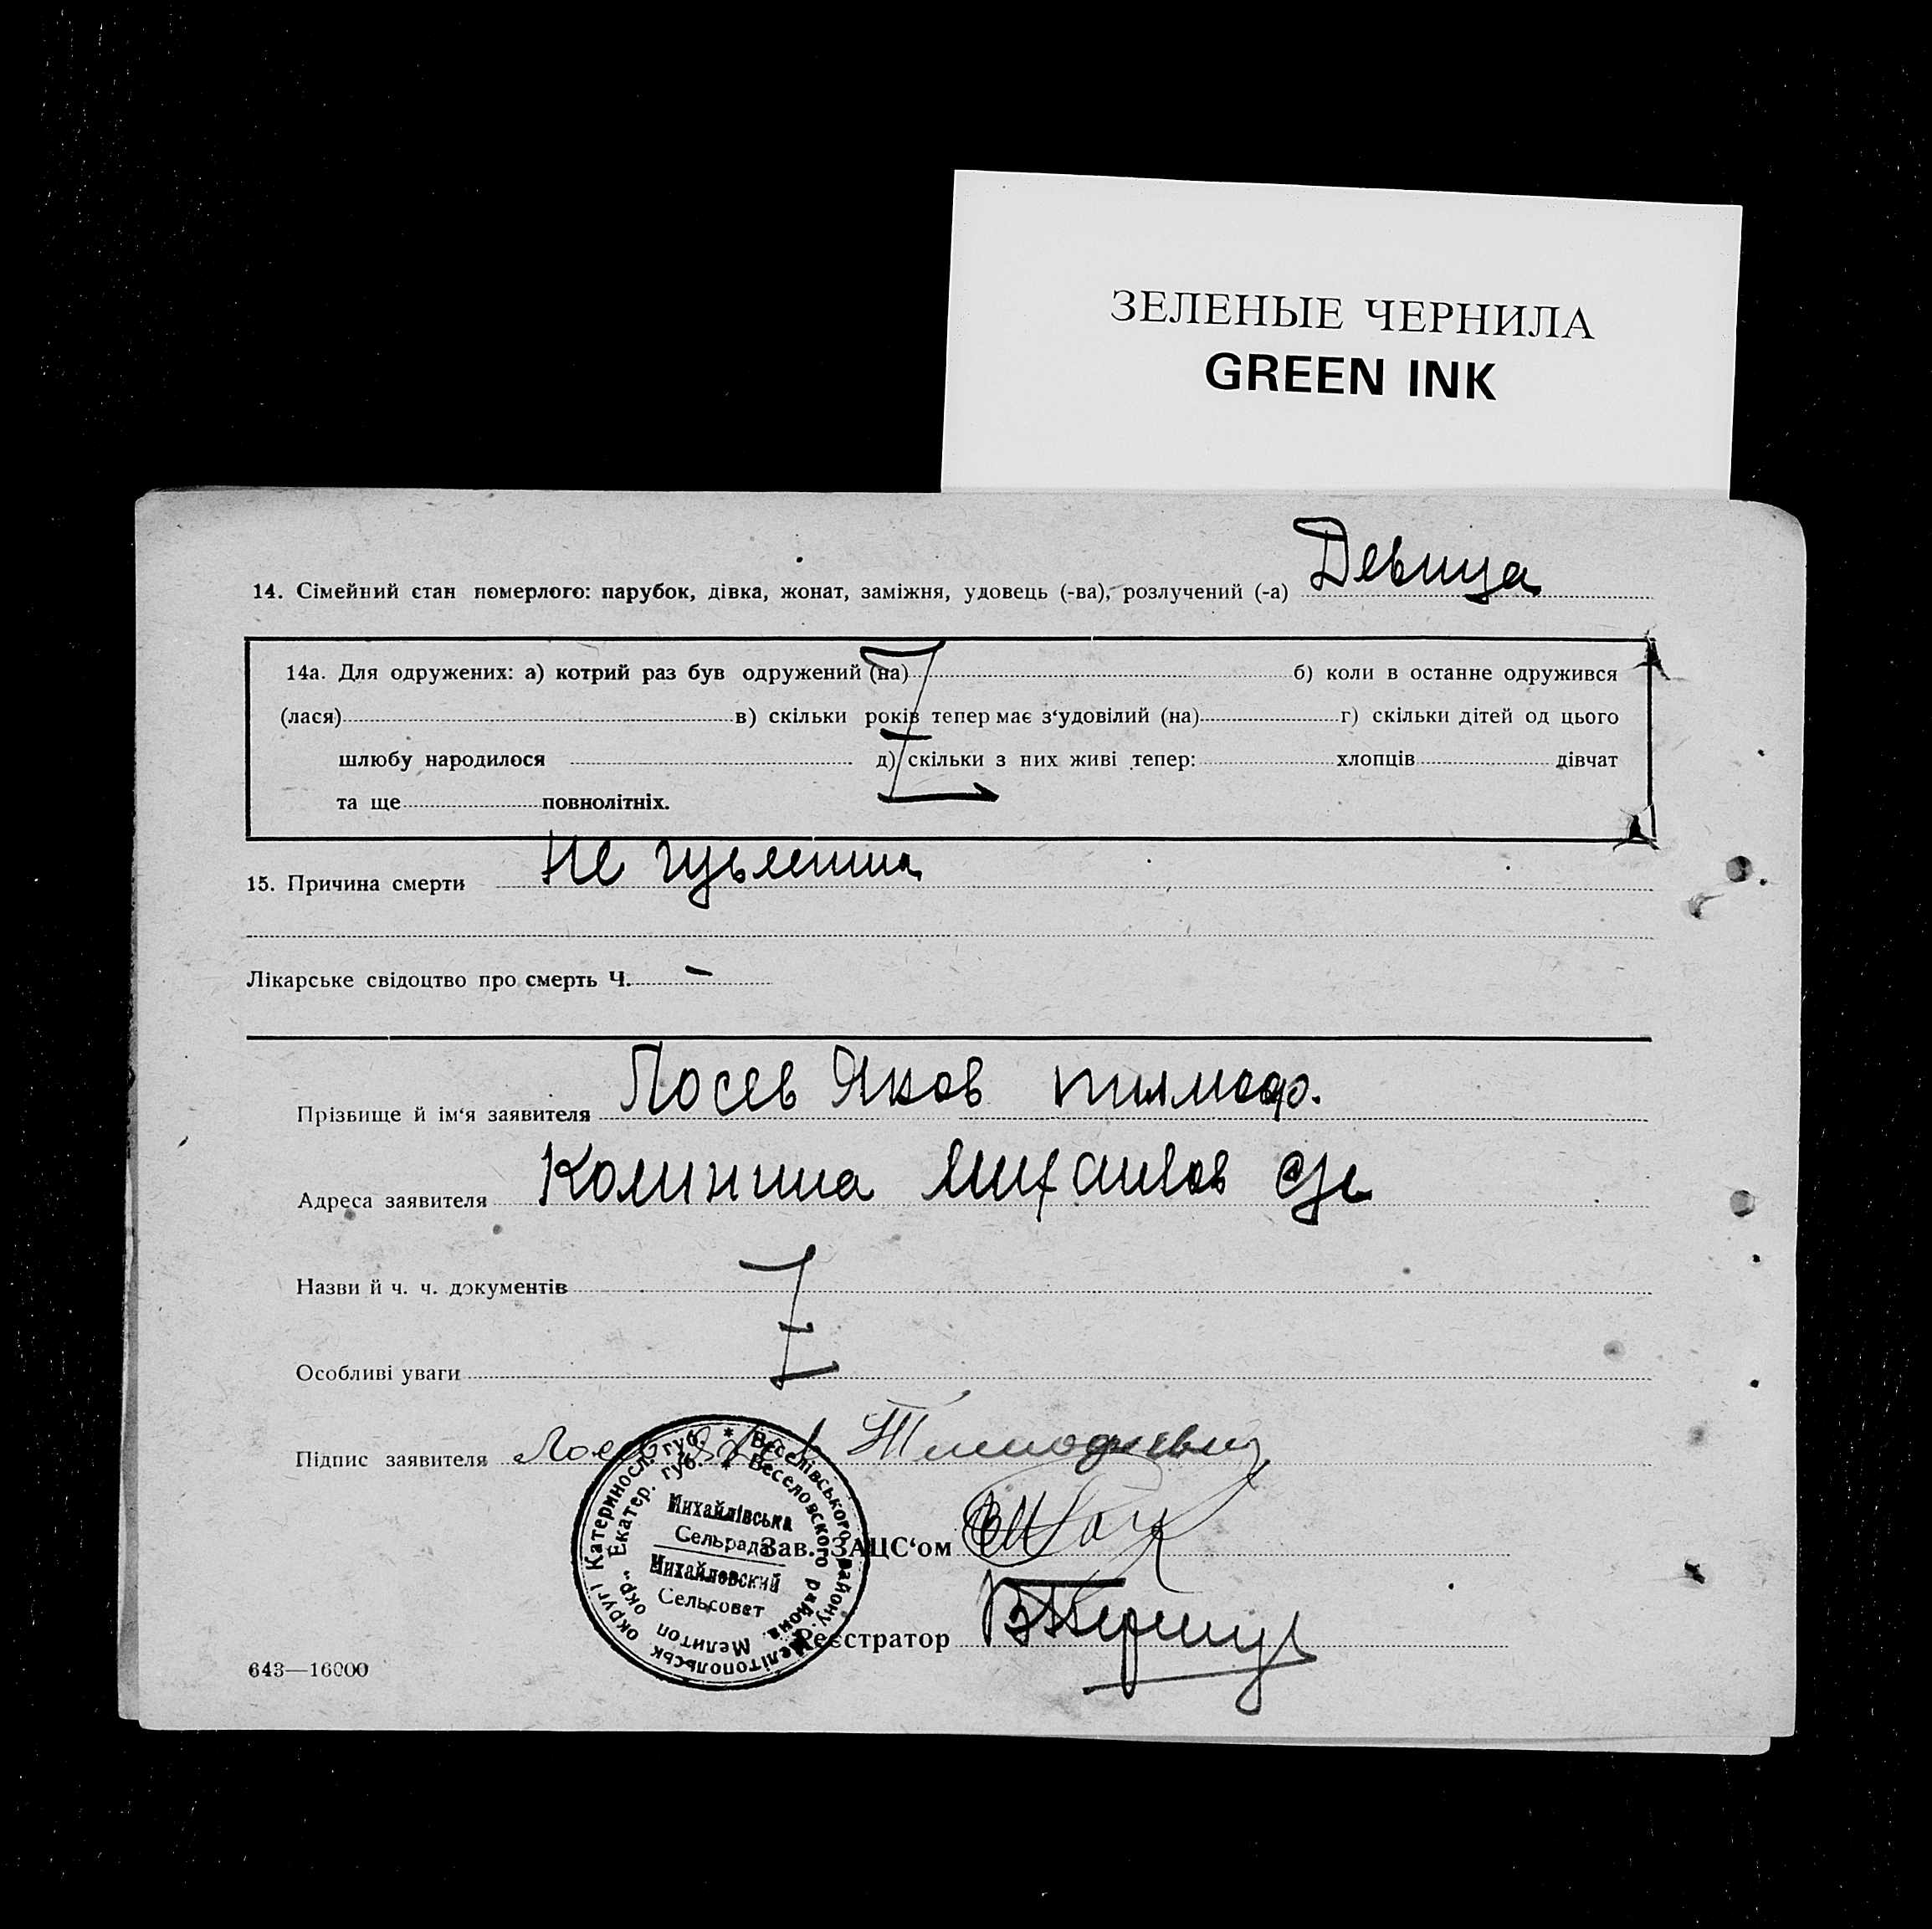 ЗЕЛЕНЫЕ ЧЕРНИЛА
GREEN INK
14. Сімейний стан померлого: парубок, дівка, жонат, заміжня, удовець (-ва), розлучений (-а) Девица
14а. Для одружених: а) котрий раз був одружений (на) б) коли в останне одружився
(лася) в) скільки років тепер має з‘удовілий (на) г) скільки дітей од цього
шлюбу народилося д) скільки з них живі тепер: хлопців дівчат
та ще повнолітніх.
15. Причина смерти Не
Лікарське свідоцтво про смерть Ч. –
Прізвище й ім‘я заявителя Лосев Яков тимоф.
Адреса заявителя
Назви й ч. ч. документів
Особливі уваги
Підпис заявителя Лосев Яков Тимофиевич
Зав. ЗАЦС‘ом
Реєстратор
643—16000
Катеринослав. губ. * Веселівського району. Мелітопольськ округі
Екатер. губ. * Веселовского района. Мелитоп окр.
Михайлівська
Сельрада
Михайловский
Сельсовет